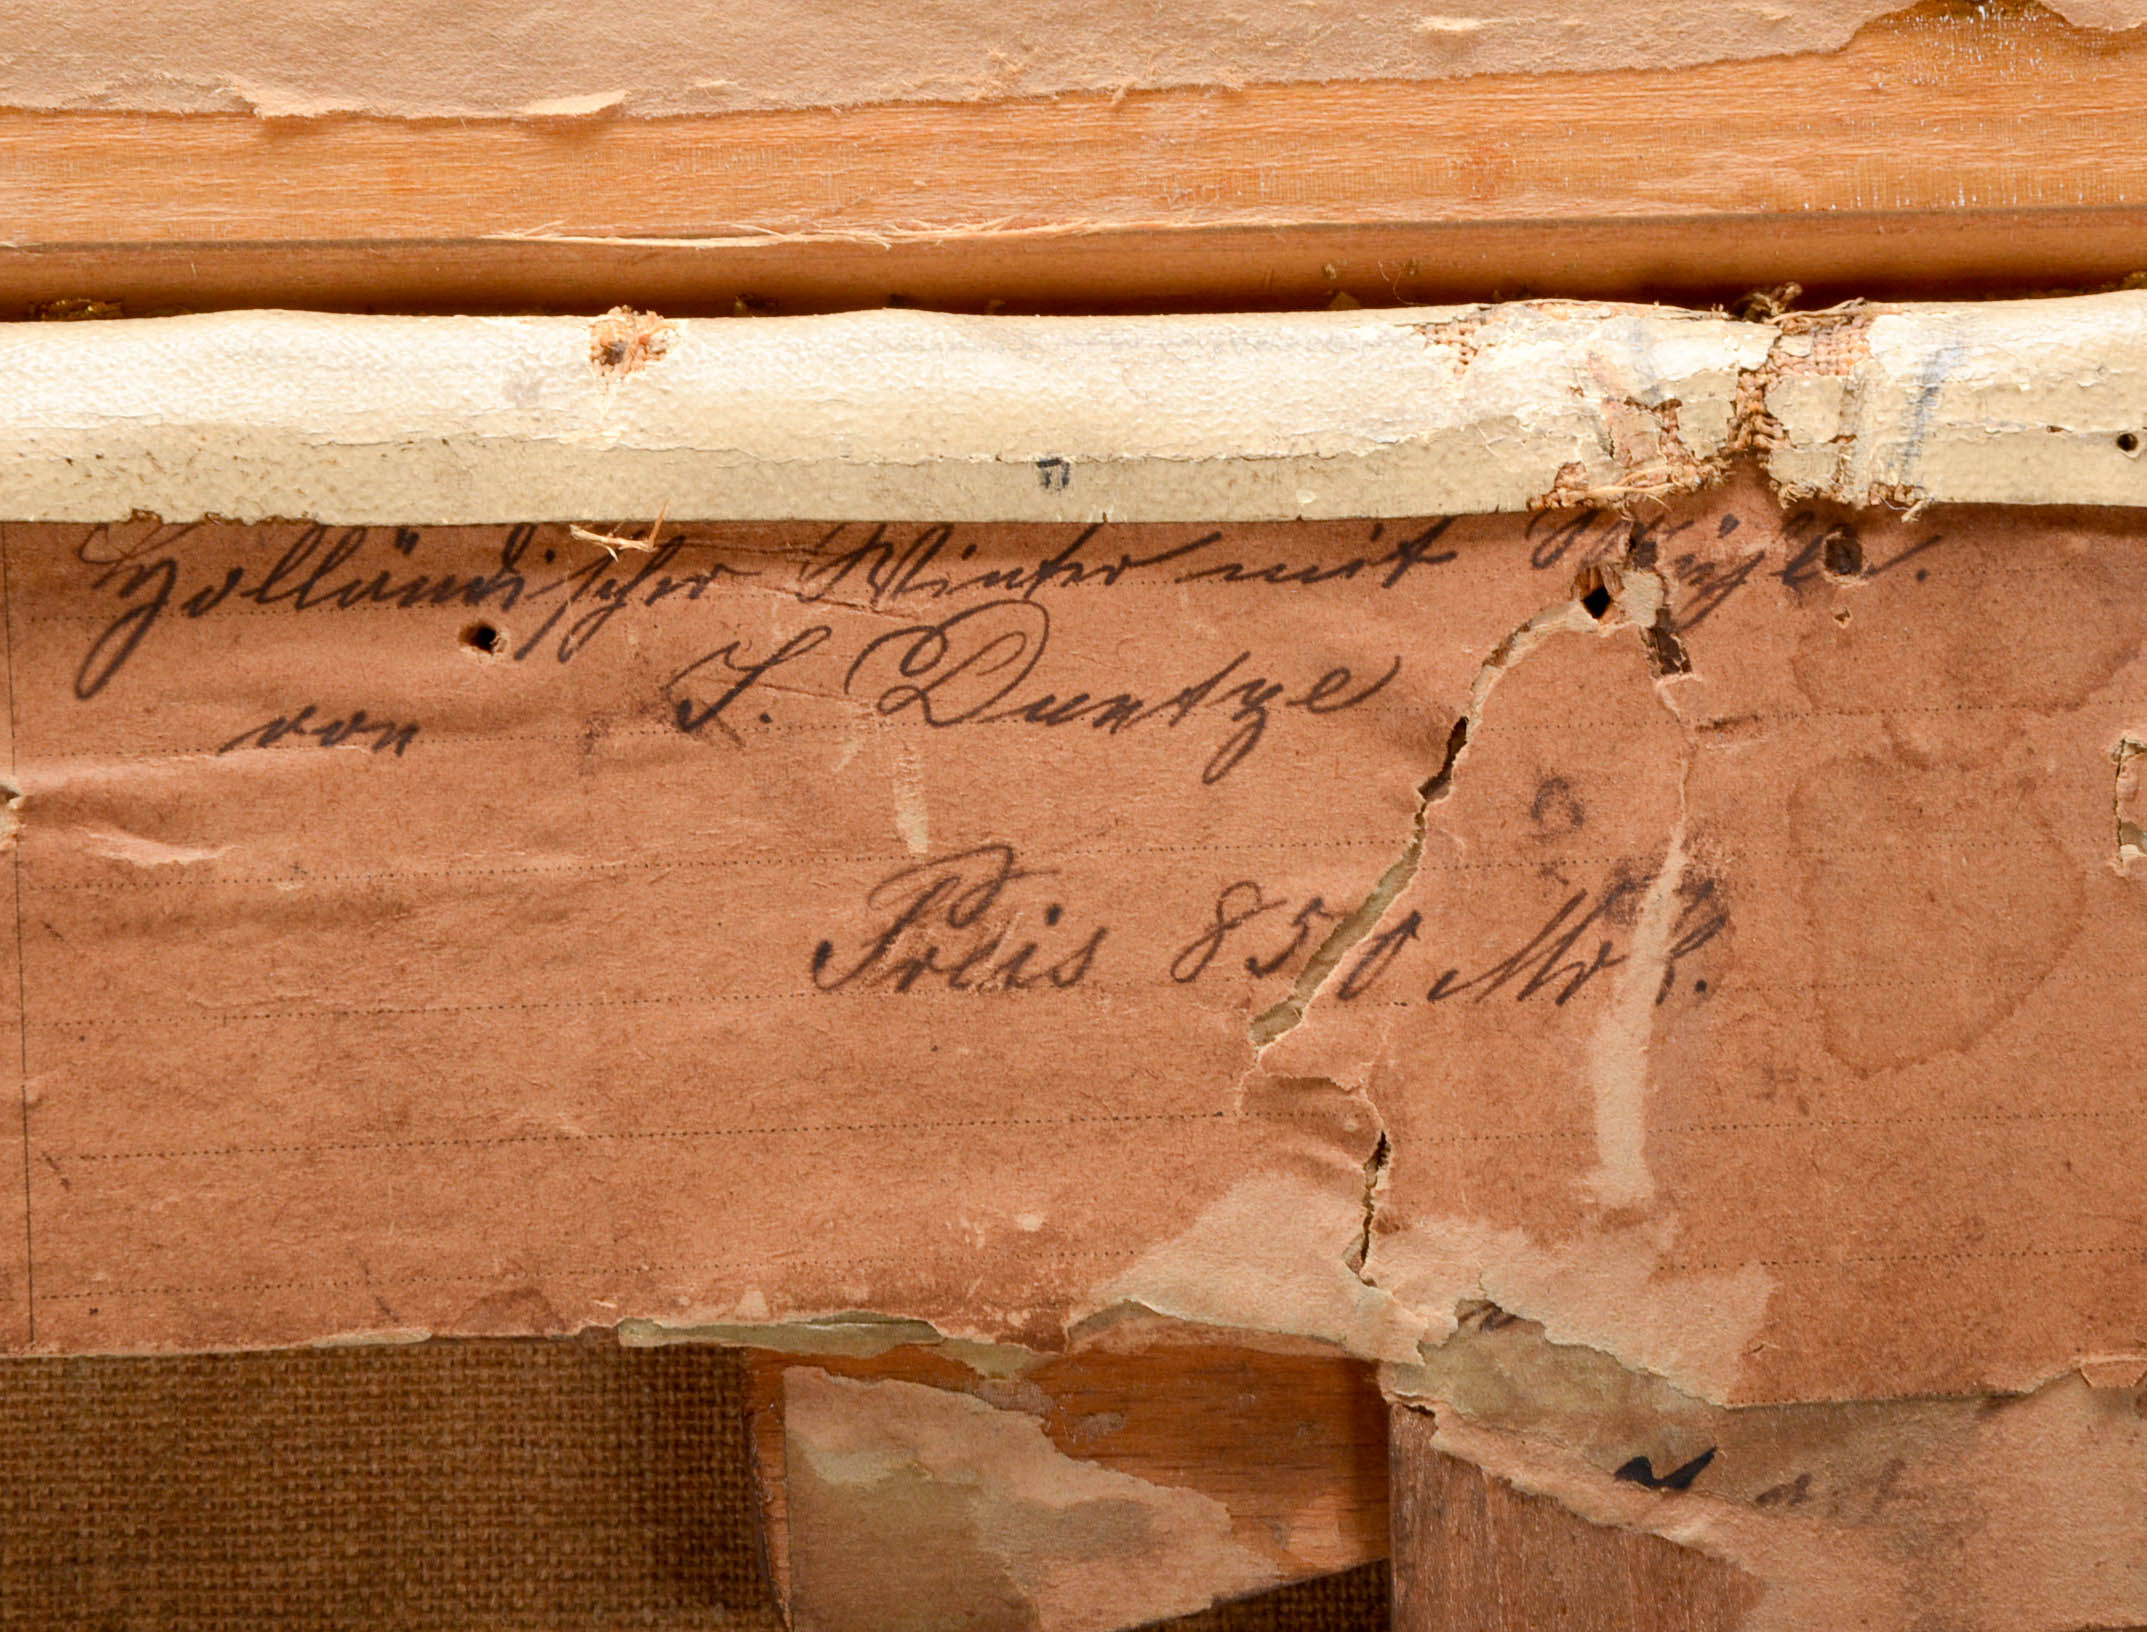 Holländischer Winter mit Mühle.
von J. Duntze
Preis 850 Mrk.